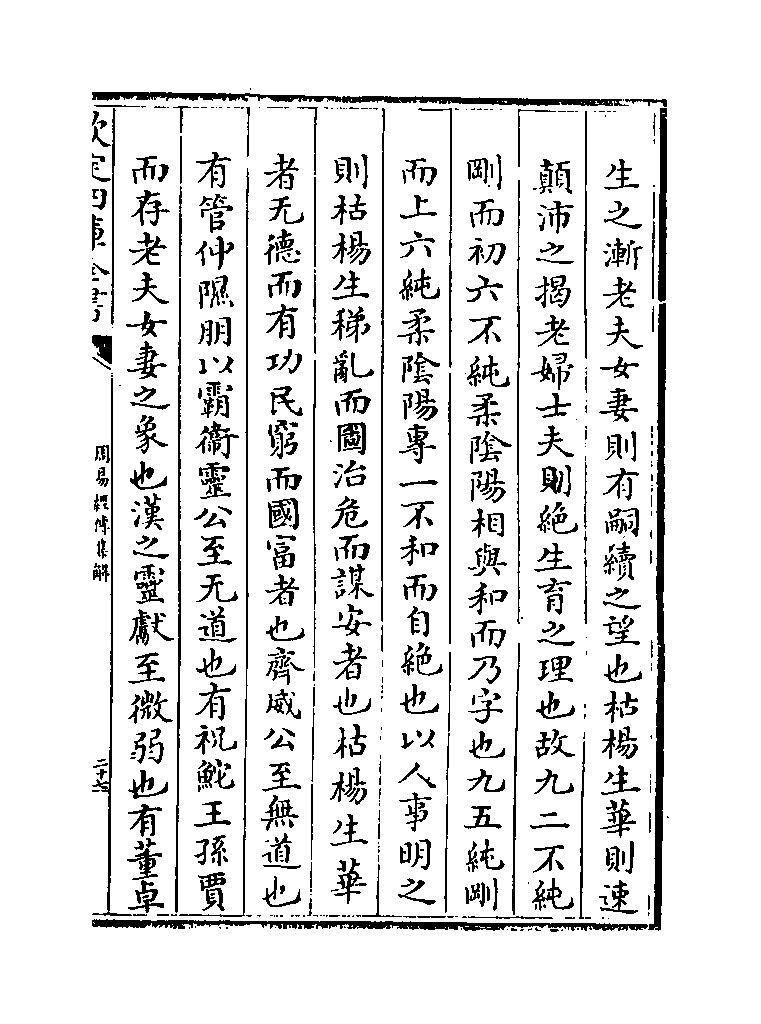 生之漸老夫女妻則有嗣續之望也枯楊生華則速
顛沛之揭老婦士夫則絶生育之理也故九二不純
剛而初六不純柔陰陽相與和而乃字也九五純剛
而上六純柔陰陽專一不和而自絶也以人事明之
則枯楊生稊亂而國治危而謀安者也枯楊生華
者无德而有功民窮而國富者也齊威公至無道也
有管仲隰朋以霸衞靈公至无道也有祝鮀王孫賈
而存老夫女妻之象也漢之靈獻至微弱也有董卓
欽定四庫全書
周易經傳集解
二十七